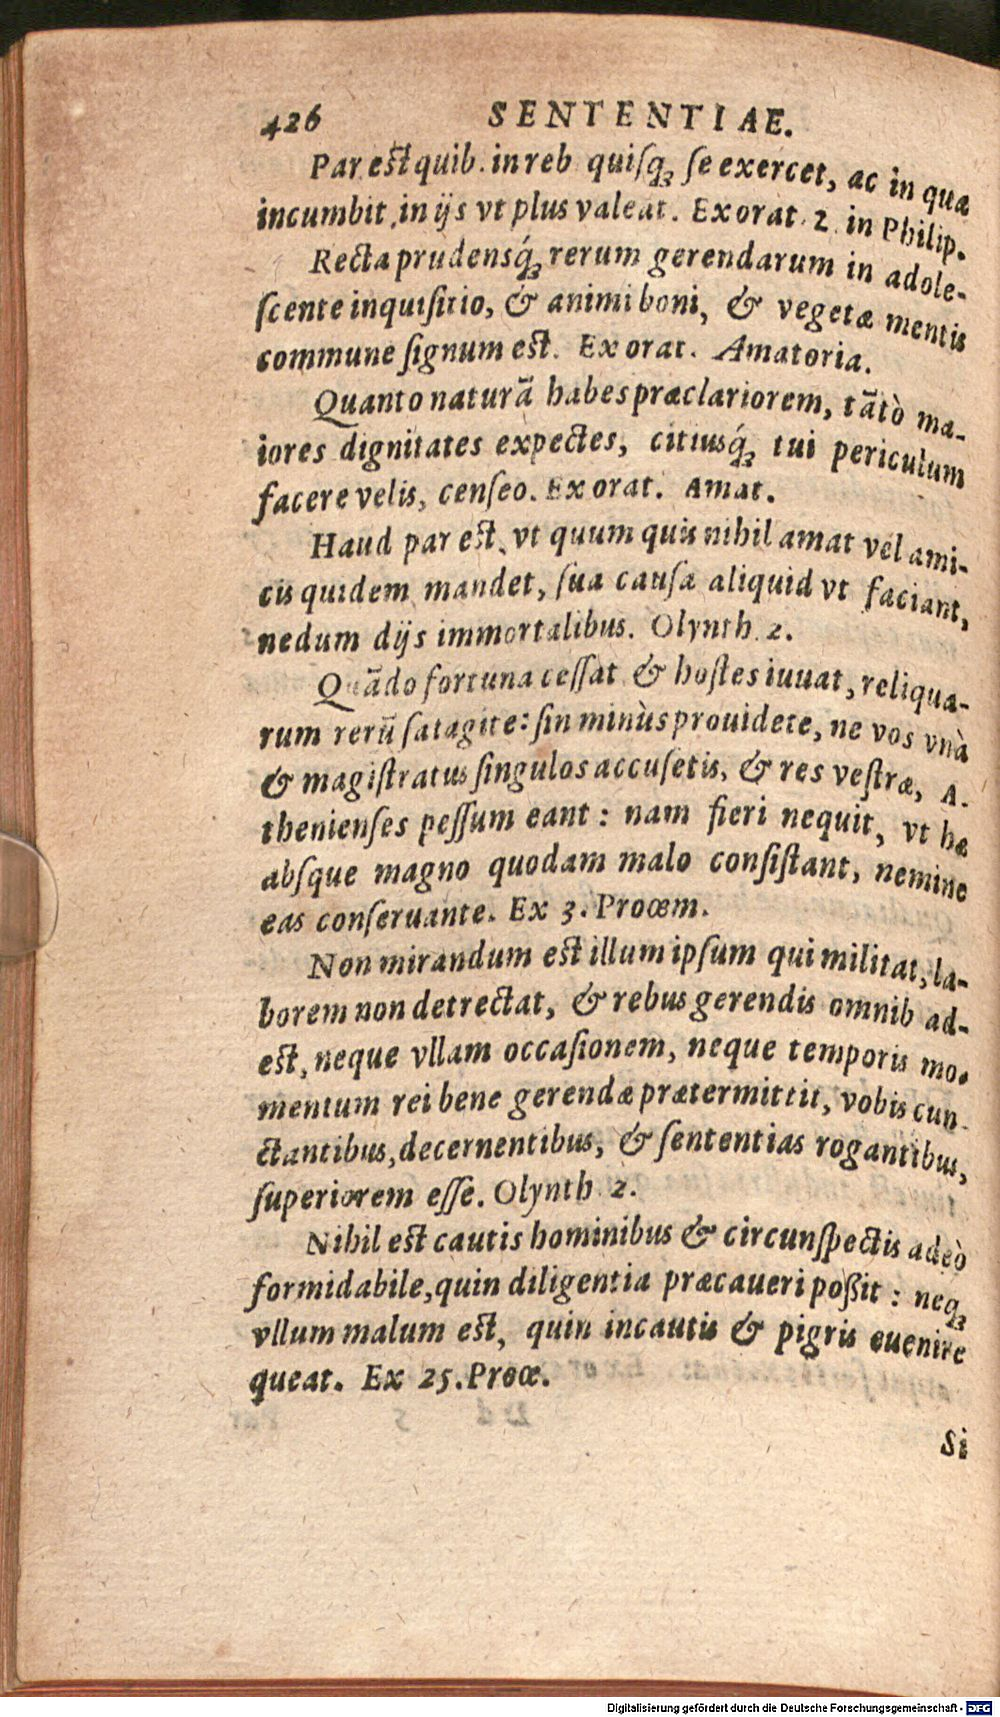 426 SENTENTIAE.
Par est quib. in reb quiſqꝫ ſe exercet, ac in quæ
incumbit, in ijs vt plus valeat. Ex orat. 2. in Philip.
Recta prudensq́ꝫ rerum gerendarum in adole-
ſcente inquiſitio, & animi boni, & vegetæ mentis
commune ſignum est. Ex orat. Amatoria.
Quanto naturā habes præclariorem, tātò ma-
iores dignitates expectes, citiusq́ꝫ tui periculum
facere velis, cenſeo. Ex orat. Amat.
Haud par est, vt quum quis nihil amat vel ami-
cis quidem mandet, ſua cauſa aliquid vt faciant,
nedum dijs immortalibus. Olynth. 2.
Quādo fortuna ceſſat & hoſtes iuuat, reliqua-
rum rerū ſatagite: ſin minùs prouidete, ne vos vnà
& magiſtratus ſingulos accuſetis, & res veſtræ, A-
thenienſes peſſum eant: nam fieri nequit, vt hæ
abſque magno quodam malo conſiſtant, nemine
eas conſeruante. Ex 3. Proœm.
Non mirandum est illum ipſum qui militat, la-
borem non detrectat, & rebus gerendis omnib ad-
est, neque vllam occaſionem, neque temporis mo-
mentum rei bene gerendæ prætermittit, vobis cun-
ctantibus, decernentibus, & ſententias rogantibus,
ſuperiorem eſſe. Olynth 2.
Nihil est cautis hominibus & circunſpectis adeò
formidabile, quin diligentia præcaueri poßit: neqꝫ
vllum malum est, quin incautis & pigris euenire
queat. Ex 25. Proœ.
Si
Digitalisierung gefördert durch die Deutsche Forschungsgemeinschaft - DFG